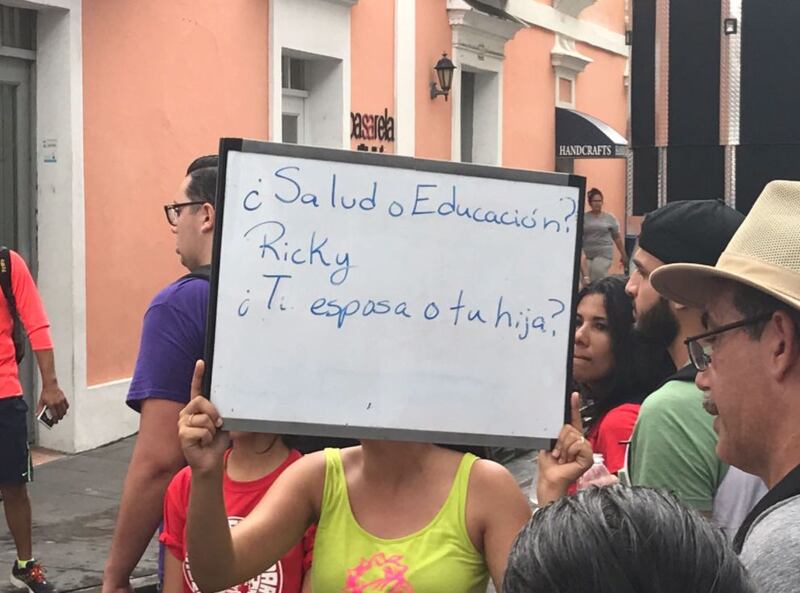 pasarela
HANDCRAFTS
¿Salud o Educación?
Ricky
¿Tu esposa o tu hija?